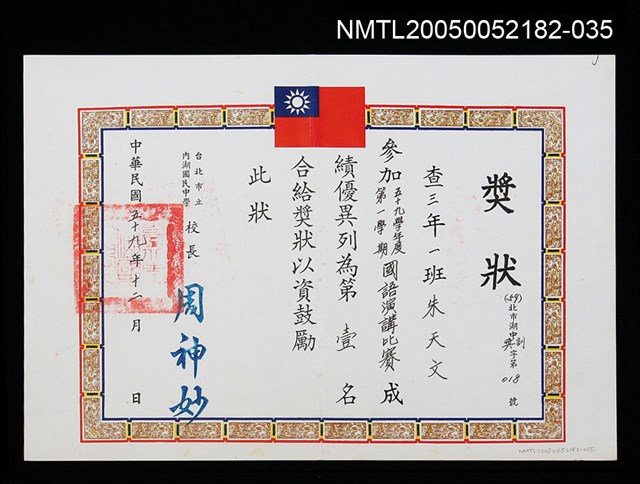 NMTL20050052182-035
獎狀
(59)北市湖中獎字第018號
查三年一班朱天文
參加五十九學年度第一學期國語演講比賽成
績優異列為第壹名
合給獎狀以資鼓勵
此狀
台北市立
內湖國民中學
校長 周神妙
中華民國五十九年十二月 日
NMTL20050052182-035